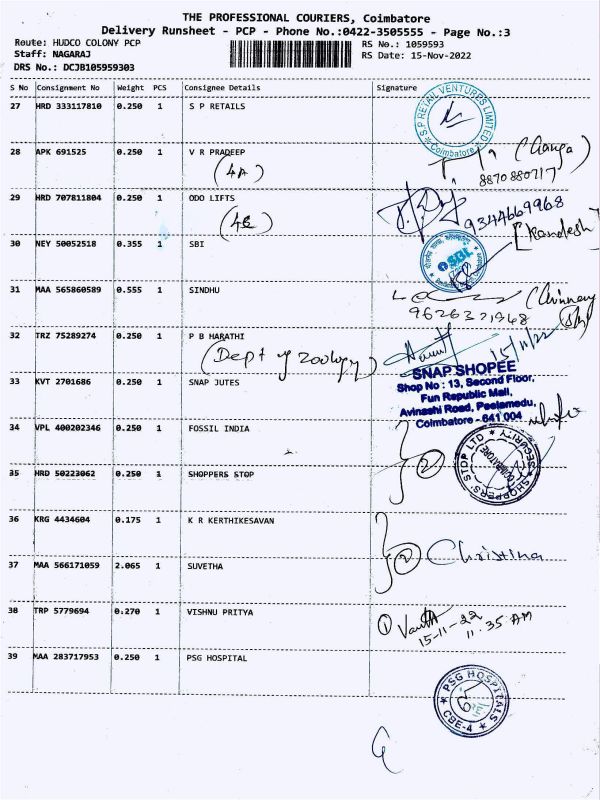 THE PROFESSIONAL COURIERS, Coimbatore
Delivery Runsheet - PCP - Phone No.:0422-3505555 - Page No.:3
Route: HUDCO COLONY PCP
Staff: NAGARAJ
DRS No.: DCJB105959303
RS No.: 1059593
RS Date: 15-Nov-2022
S No Consignment No Weight PCS Consignee Details Signature
27 HRD 333117810 0.250 1 S P RETAILS
S P RETAIL VENTURES LIMITED
Coimbatore
28 APK 691525 0.250 1 V R PRADEEP
(4A)
(Ganga)
8870880717
29 HRD 707811804 0.250 1 ODO LIFTS
9344669968
30 NEY 50052518 0.355 1 SBI
SBI
31 MAA 565860589 0.555 1 SINDHU
9626321968
32 TRZ 75289274 0.250 1 P B HARATHI
(Dept of Zoology)
15/11/22
33 KVT 2701686 0.250 1 SNAP JUTES
SNAP SHOPEE
Shop No : 13, Second Floor,
Fun Republic Mall,
Avinashi Road, Peelamedu,
Coimbatore - 641 004
34 VPL 400202346 0.250 1 FOSSIL INDIA
2
SHOPPERS' STOP LTD
COIMBATORE
SECURITY
35 HRD 50223062 0.250 1 SHOPPERS STOP
36 KRG 4434604 0.175 1 K R KERTHIKESAVAN
2 Christina
37 MAA 566171059 2.065 1 SUVETHA
38 TRP 5779694 0.270 1 VISHNU PRITYA
1
15-11-22
11.35 AM
39 MAA 283717953 0.250 1 PSG HOSPITAL
PSG HOSPITALS
CBE-4